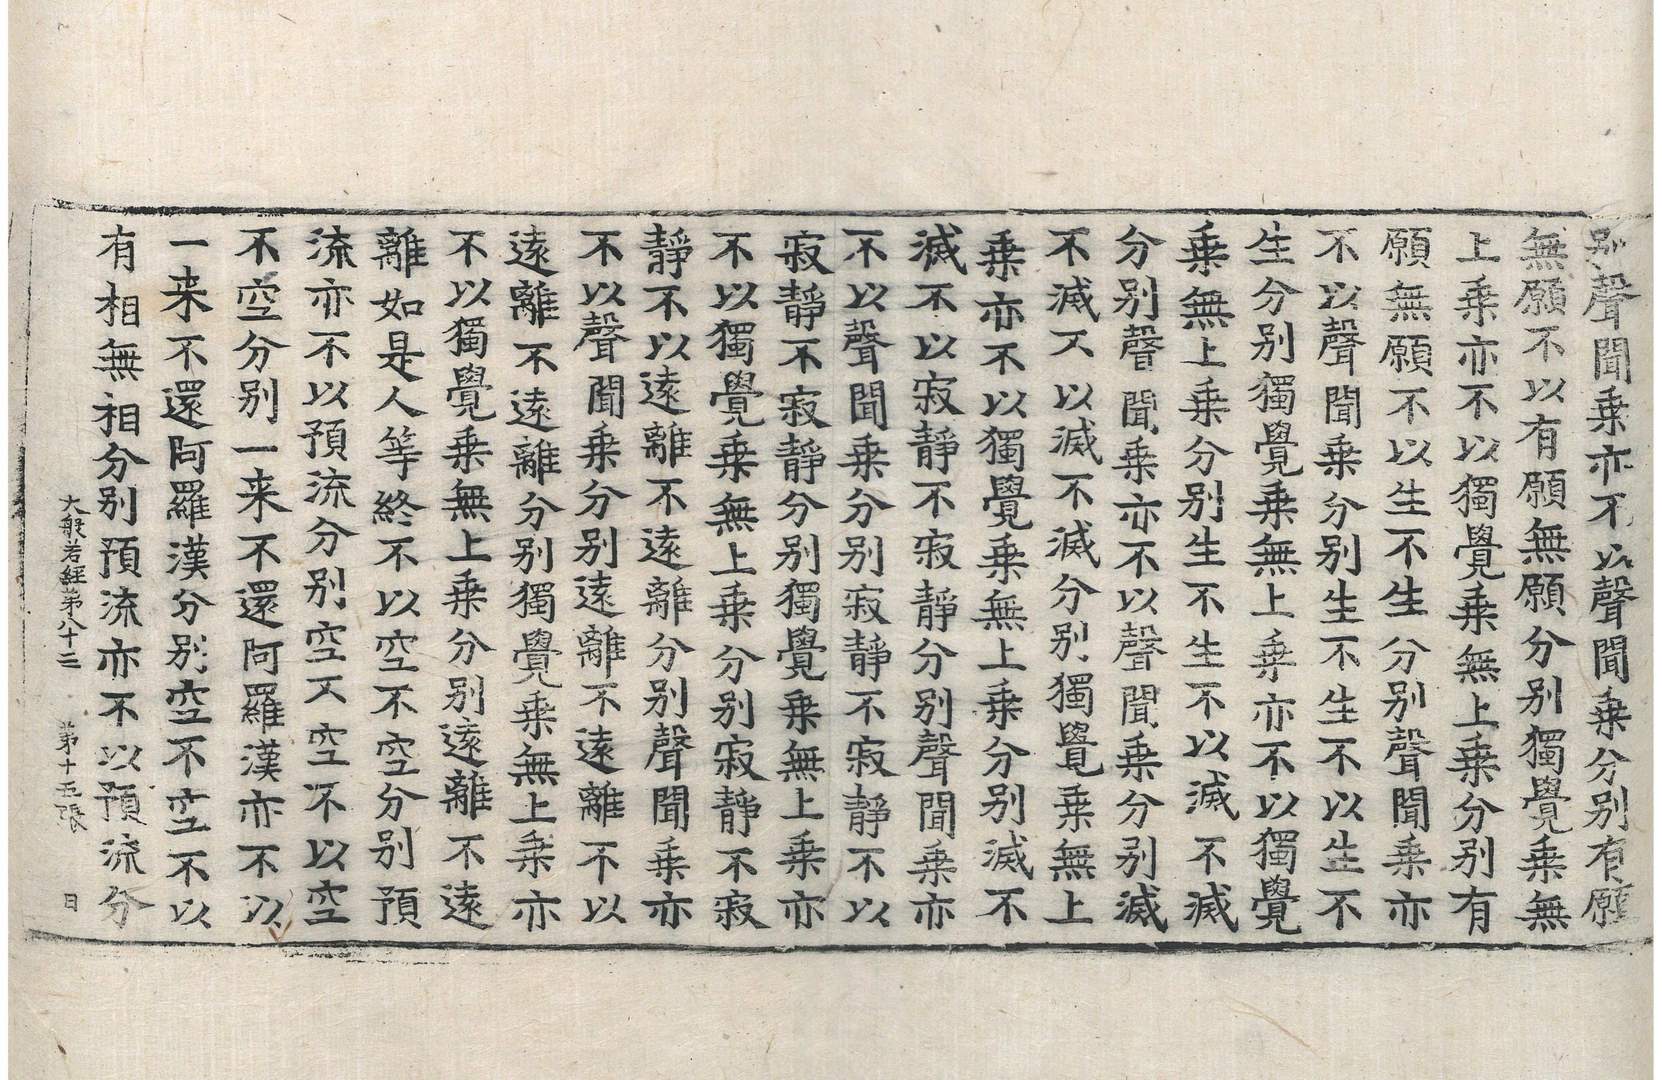 別聲聞乗亦不以聲聞乗分別有願
無願不以有願無願分別獨覺乗無
上乗亦不以獨覺乗無上乗分別有
願無願不以生不生分別聲聞乗亦
不以聲聞乗分別生不生不以生不
生分別獨覺乗無上乗亦不以獨覺
乗無上乗分別生不生不以滅不滅
分別聲聞乗亦不以聲聞乗分別滅
不滅不以滅不滅分別獨覺乗無上
乗亦不以獨覺乗無上乗分別滅不
滅不以寂靜不寂靜分別聲聞乗亦
不以聲聞乗分別寂靜不寂靜不以
寂靜不寂靜分別獨覺乗無上乗亦
不以獨覺乗無上乗分別寂靜不寂
靜不以遠離不遠離分別聲聞乗亦
不以聲聞乗分別遠離不遠離不以
遠離不遠離分別獨覺乗無上乗亦
不以獨覺乗無上乗分別遠離不遠
離如是人等終不以空不空分別預
流亦不以預流分別空不空不以空
不空分別一来不還阿羅漢亦不以
一来不還阿羅漢分別空不空不以
有相無相分別預流亦不以預流分
大般若經第八十二 第十五張 日